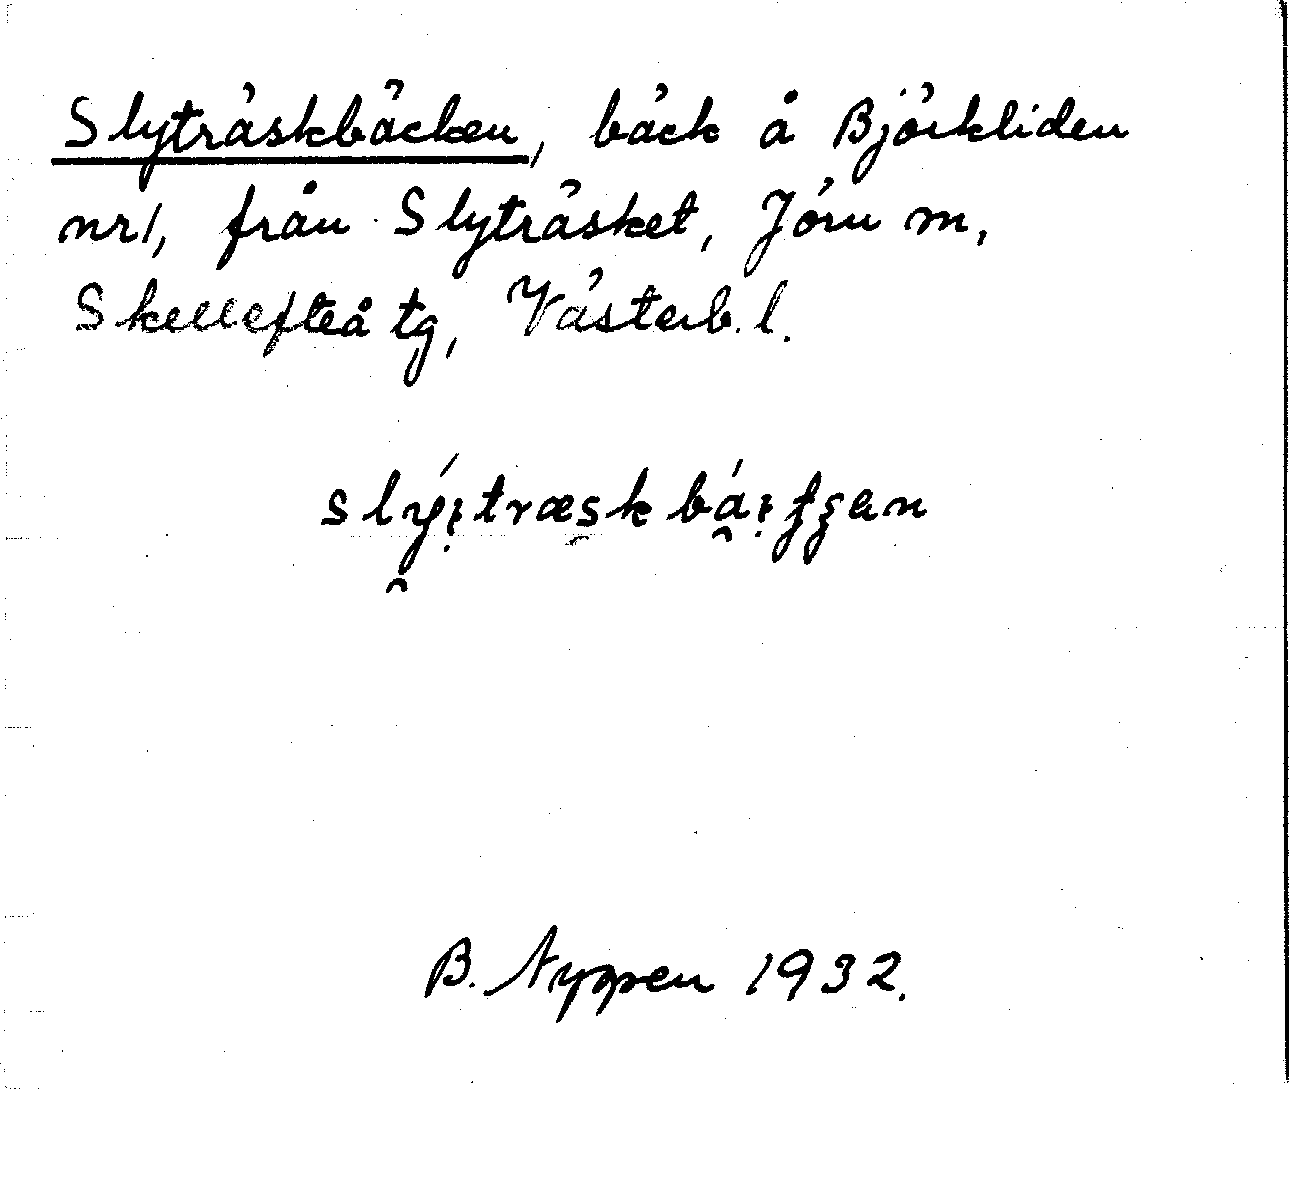 Slyträskbäcken, bäck å Björkliden
nr 1, från Slyträsket, Jörn m,
Skellefteå tg, Västerb. l.
B. Nyppen 1932.